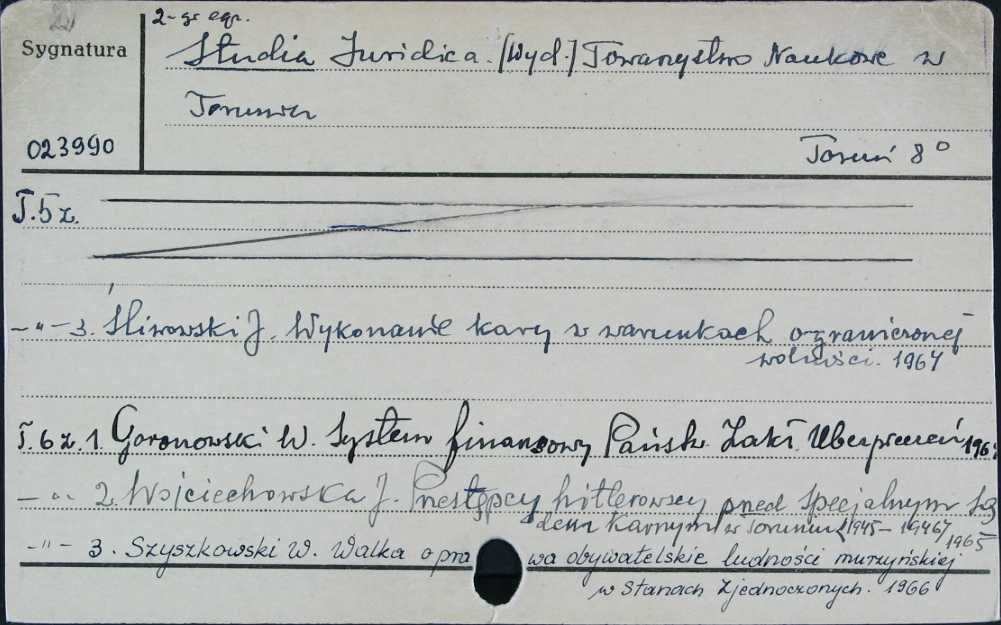 2-gi egz.
Sygnatura
Studia Juridica. [Wyd.] Towarzystwo Naukowe w
Toruniu
023990
Toruń 8°
T.5 z.
-"- 3. Śliwowski J. Wykonanie kary w warunkach ograniczonej
wolności. 1964
T.6 z.1. Goronowski W. System finansowy Państw. Zakł. Ubezpieczeń
-"- 2. Wojciechowska J. Przestępcy hitlerowscy przed specjalnym Są
dem Karnym w Toruniu /1945-1946/
1965
-"- 3. Szyszkowski W. Walka o pra wa obywatelskie ludności murzyńskiej
w Stanach Zjednoczonych. 1966